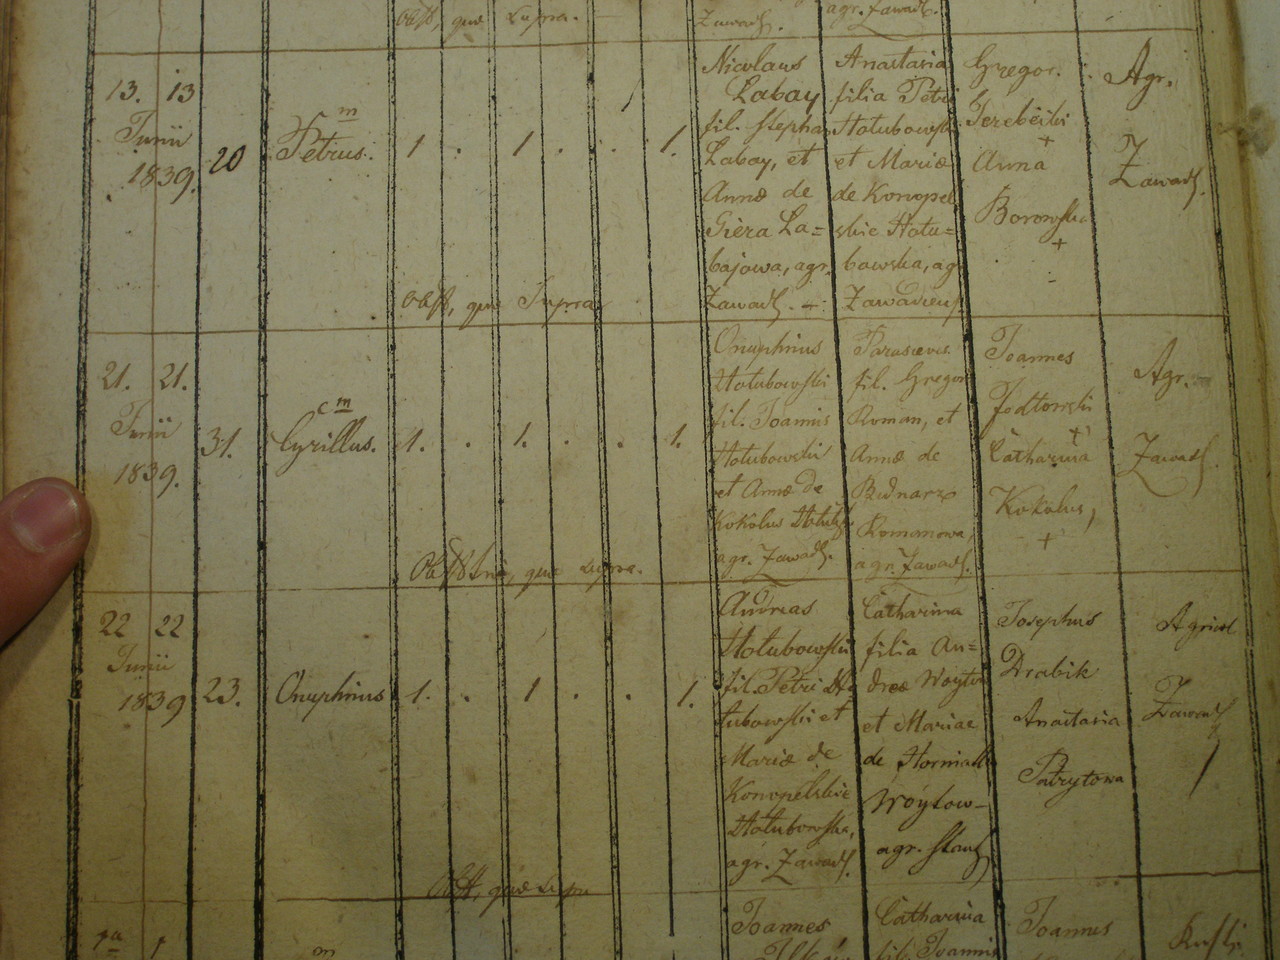 Obst, quæ supra.
Zawads.
agr. Zawads.
13. 13
Junii
1839.
20
m
Petrus.
1 . 1 . . 1.
Obst, quæ Supra
Nicolaus
Labay
fil. Stepha
Labay, et
Annæ de
Giera La=
bajowa, agr.
Zawads.
Anastasia
filia Petri
Hołubowski
et Mariæ
de Konopel
skie Hołu=
bowska, agr
Zawadiens.
Gregor.
Terebecki
+
Anna
Borowska
+
Agr.
Zawads.
21. 21.
Junii
1839.
31.
c m
Cyrillus.
1. . 1. . . 1.
quæ supra.
Onuphrius
Hołubowski
fil. Joannis
Hołubowski
et Annæ de
Kokolus
agr. Zawads.
Parascevia
fil. Gregori
Roman, et
Annæ de
Bednarz
Romanowa,
agr. Zawads.
Joannes
Jodłowski
+
Catharina
Kokolus,
+
Agr.
Zawads.
22 22
Junii
1839
23.
Onuphrius
1. . 1 . . 1.
Obst, quæ supra
Andreas
Hołubowski
fil. Petri Ho
łubowski et
Mariæ de
Konopelskie
Hołubowska,
agr. Zawads.
Catharina
filia An=
dreæ Woyto
et Mariae
de
Woytow-
agr.
Josephus
Drabik
Anastasia
Patrytowa
Agricol
Zawads
m
Joannes
Catharina
fil. Joannis
Joannes